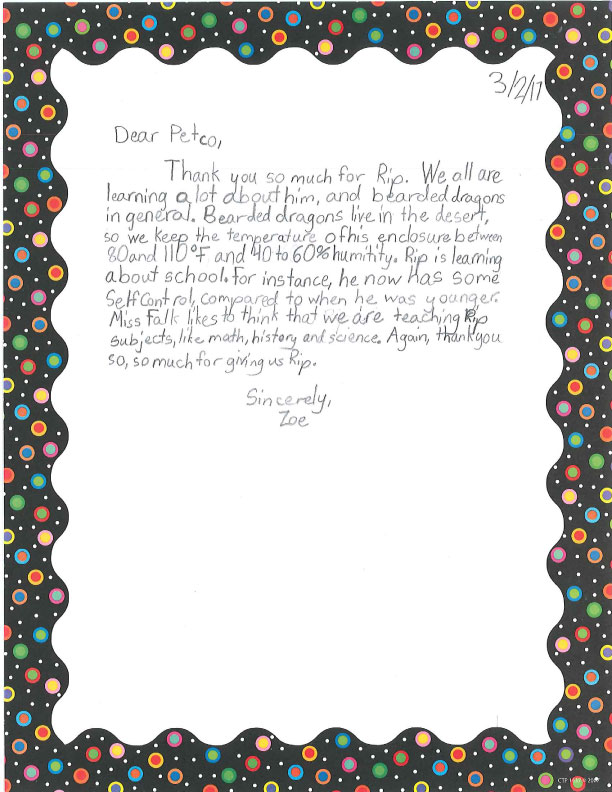 3/2/17
Dear Petco,
Thank you so much for Rip. We all are
learning a lot about him, and bearded dragons
in general. Bearded dragons live in the desert,
so we keep the temperature of his enclosure between
80 and 110°F and 40 to 60% humitity. Rip is learning
about school. For instance, he now has some
Self Control, compared to when he was younger.
Miss Falk likes to think that we are teaching Rip
subjects, like math, history, and science. Again, thank you
so, so much for giving us Rip.
Sincerely,
Zoe
CTP